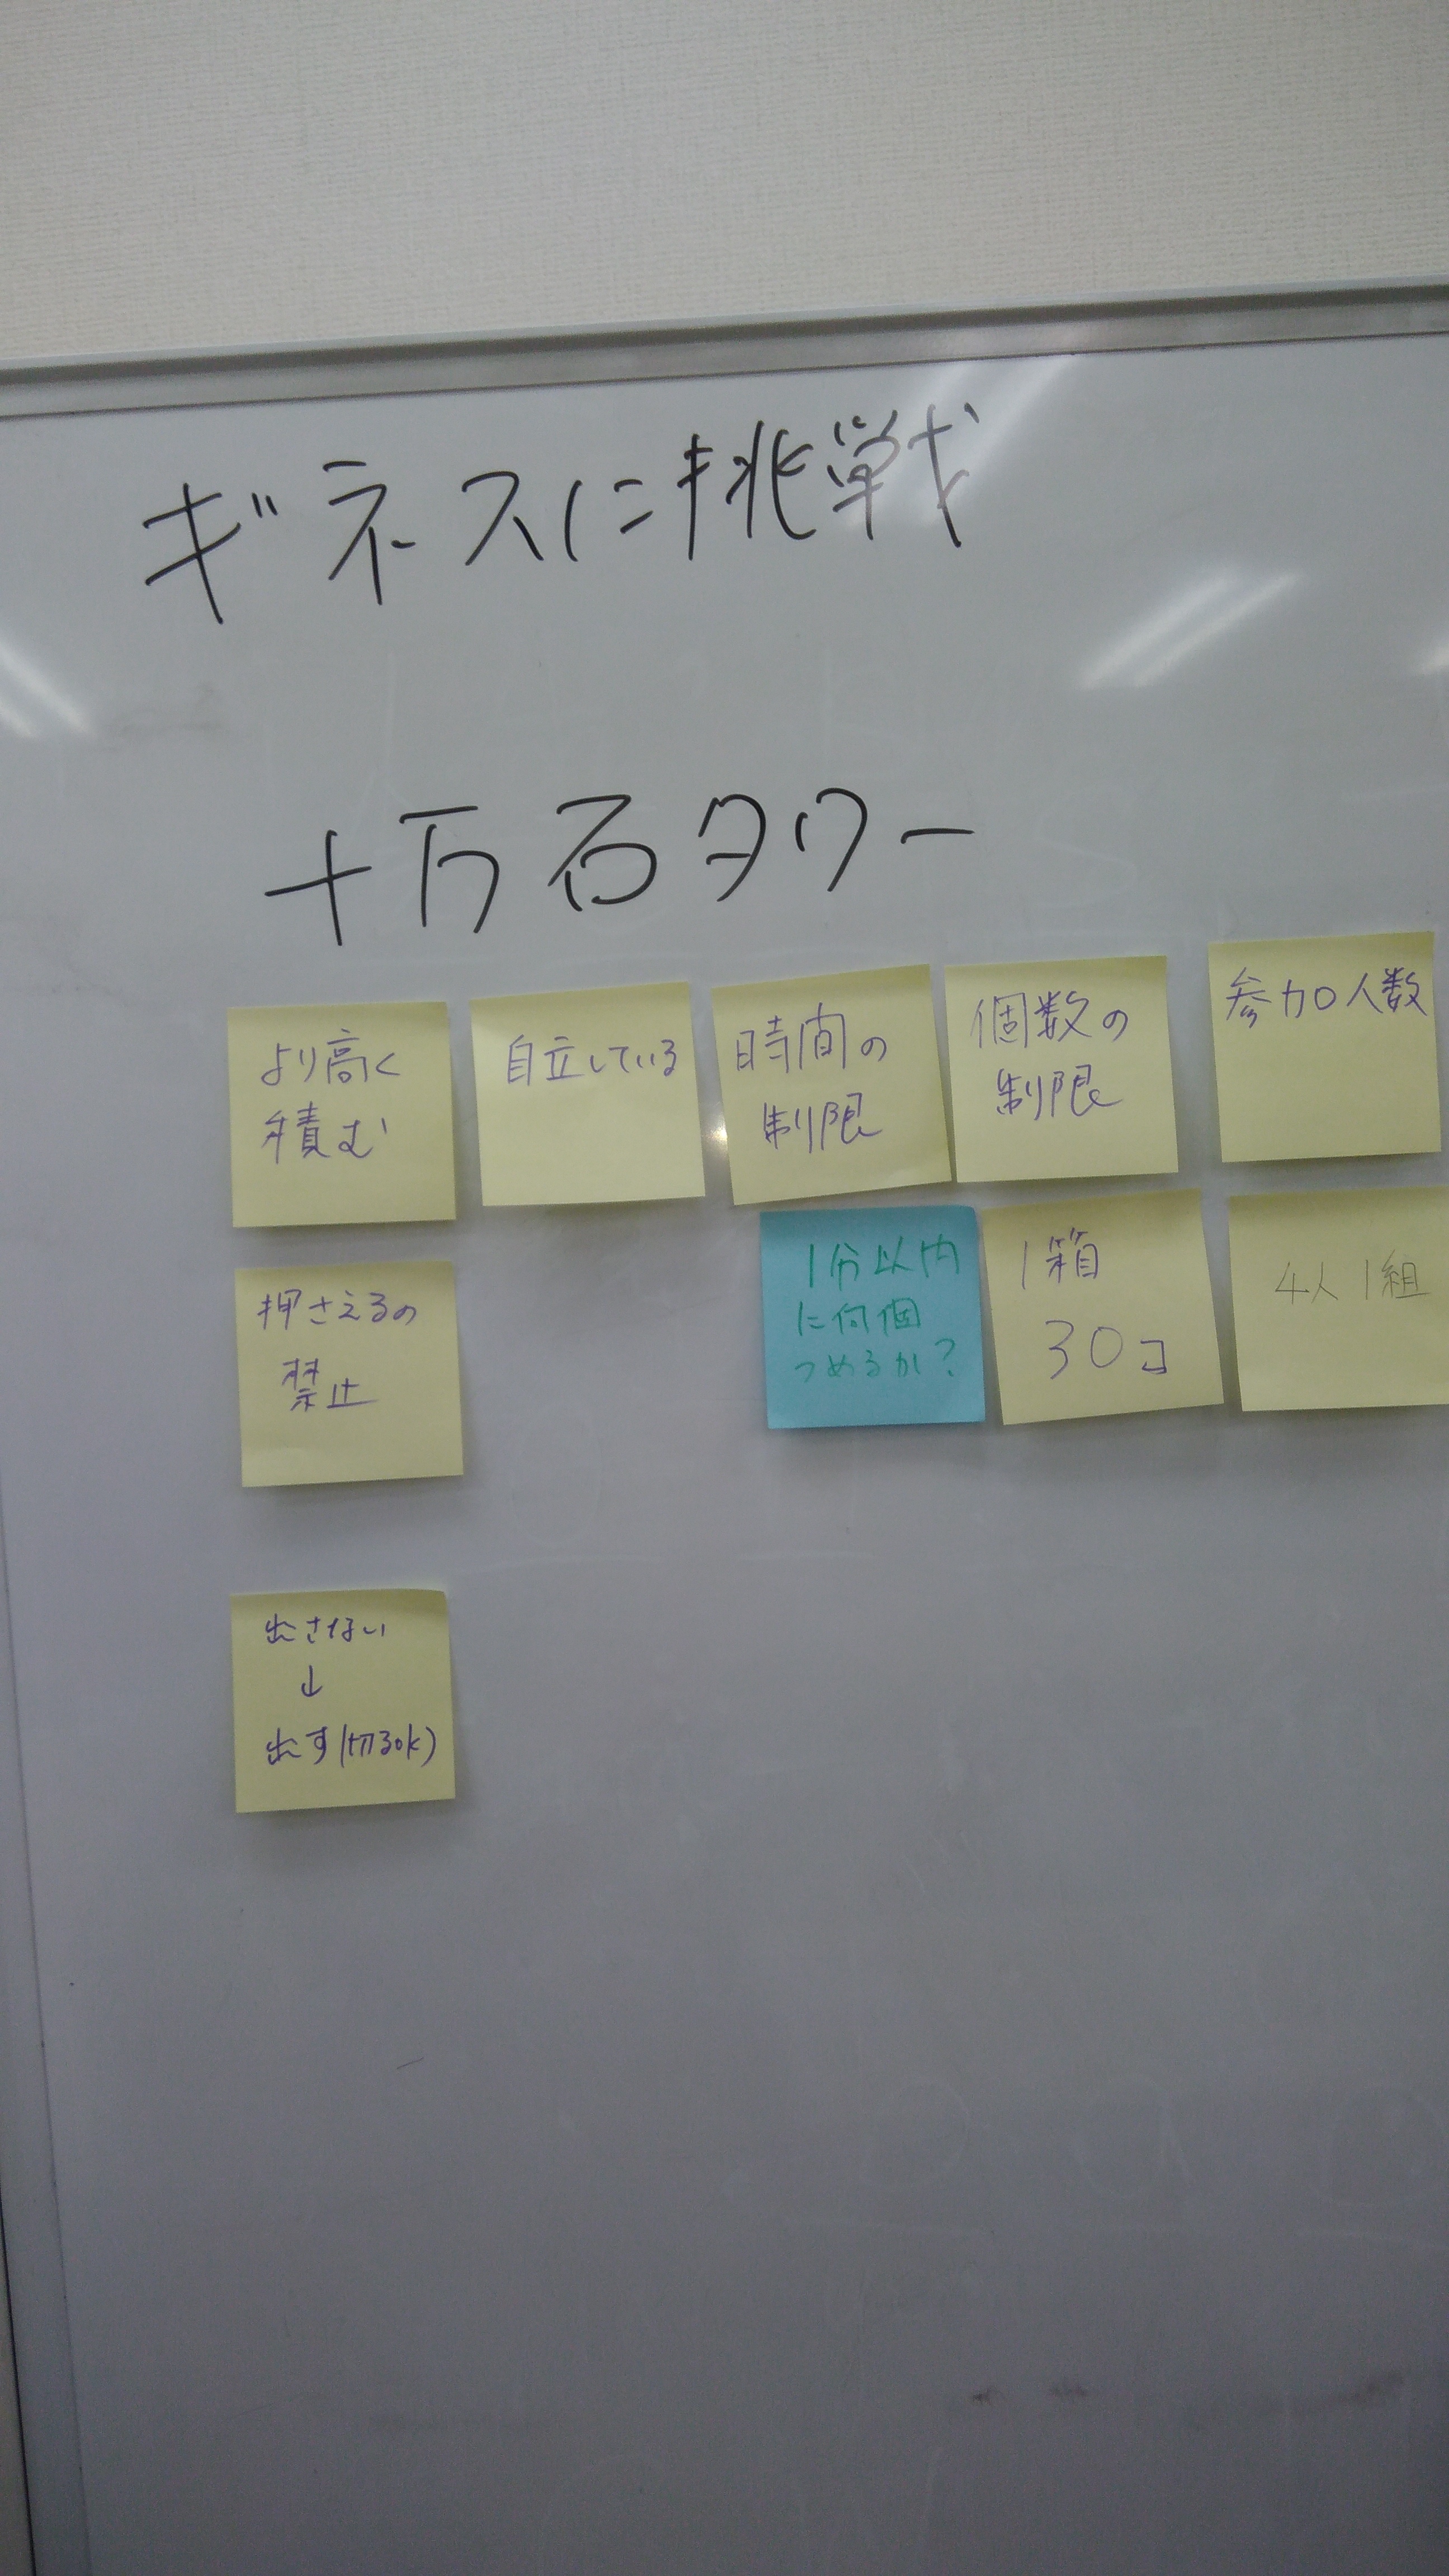 ギネスに挑戦
十万石タワー
より高く
積む
自立している
時間の
制限
個数の
制限
参加人数
押さえるの
禁止
1分以内
に何個
つめるか?
1箱
30コ
4人1組
出さない
↓
出す(切るok)